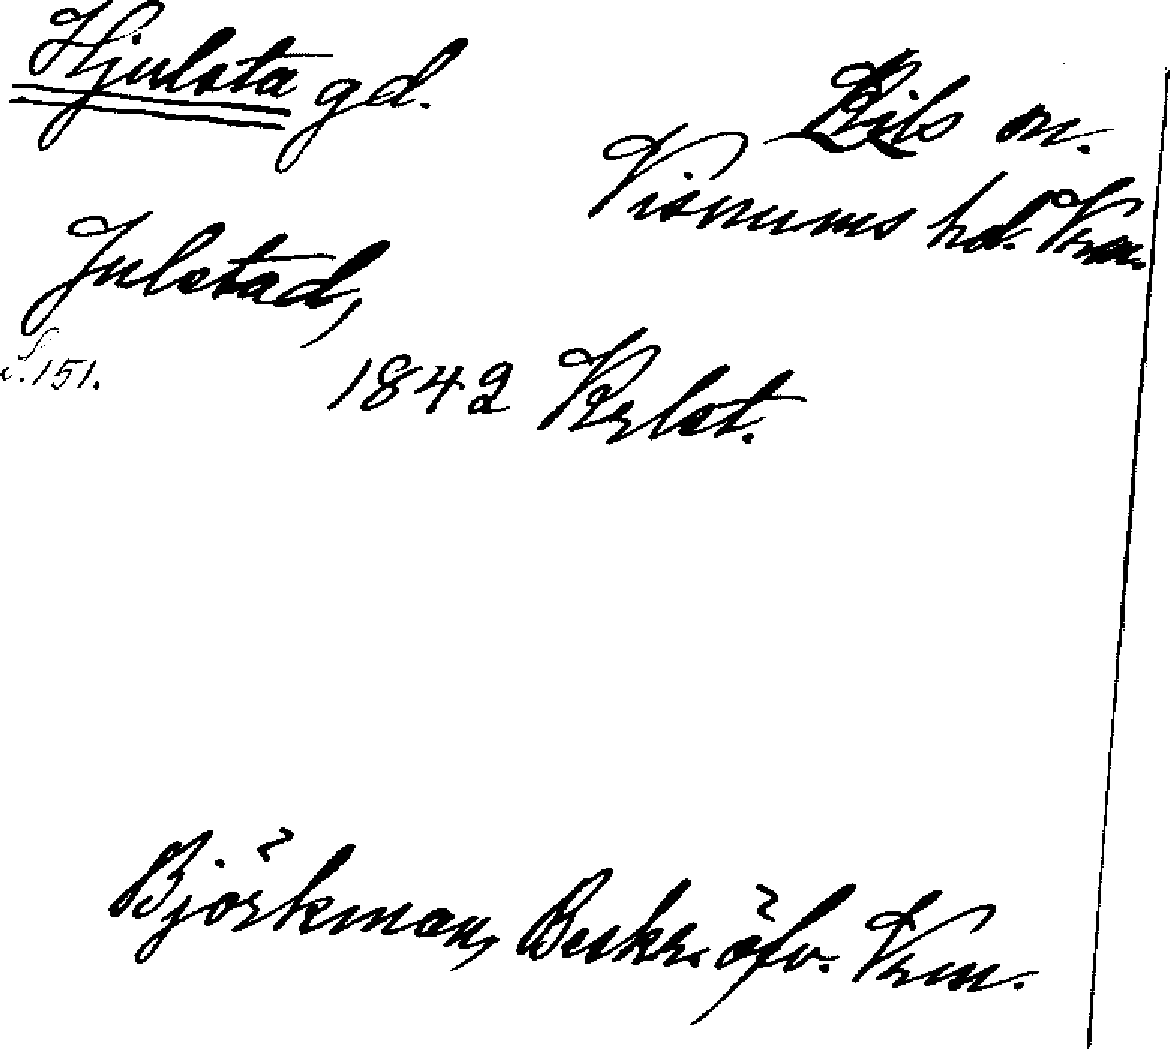 Hjulsta gd.
Kils sn.
Visnums hd. Vrm.
Julstad,
S. 151.
1842 Krlst.
Björkman, Beskr. öfv. Vrm.